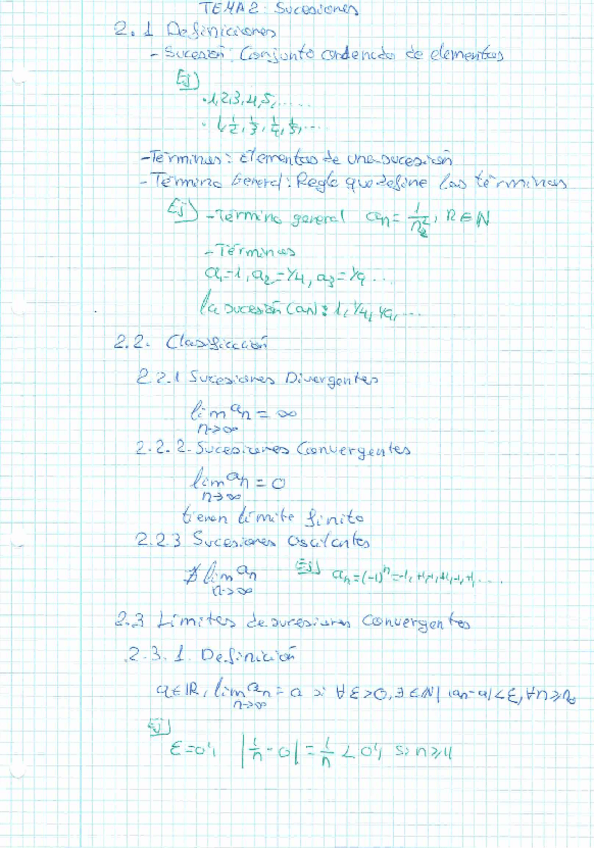 TEMA 2: Sucesiones
2.1 Definiciones
- Sucesión: Conjunto ordenado de elementos
Ej)
· 1,2,3,4,5,.....
· 1, 1/2, 1/3, 1/4, 1/5, ...
- Términos: Elementos de una sucesión
- Término General: Regla que define los términos
Ej) - Término general an = 1/n², n ∈ N
- Términos
a1=1, a2=1/4, a3=1/9 ...
la sucesión (an): 1, 1/4, 1/9, ...
2.2. Clasificación
2.2.1 Sucesiones Divergentes
lim an = ∞
n→∞
2.2.2. Sucesiones Convergentes
lim an = 0
n→∞
tienen límite finito
2.2.3 Sucesiones Oscilantes
∄ lim an Ej) an = (-1)ⁿ = -1, +1, -1, +1, -1, +1, ...
n→∞
2.3 Límites de sucesiones Convergentes
2.3.1. Definición
a ∈ IR, lim an = a si ∀ε>0, ∃ ∈ N | |an-a| < ε, ∀n ≥ n0
n→∞
Ej)
ε=0'1 |1/n - 0| = 1/n < 0'1 si n ≥ 11